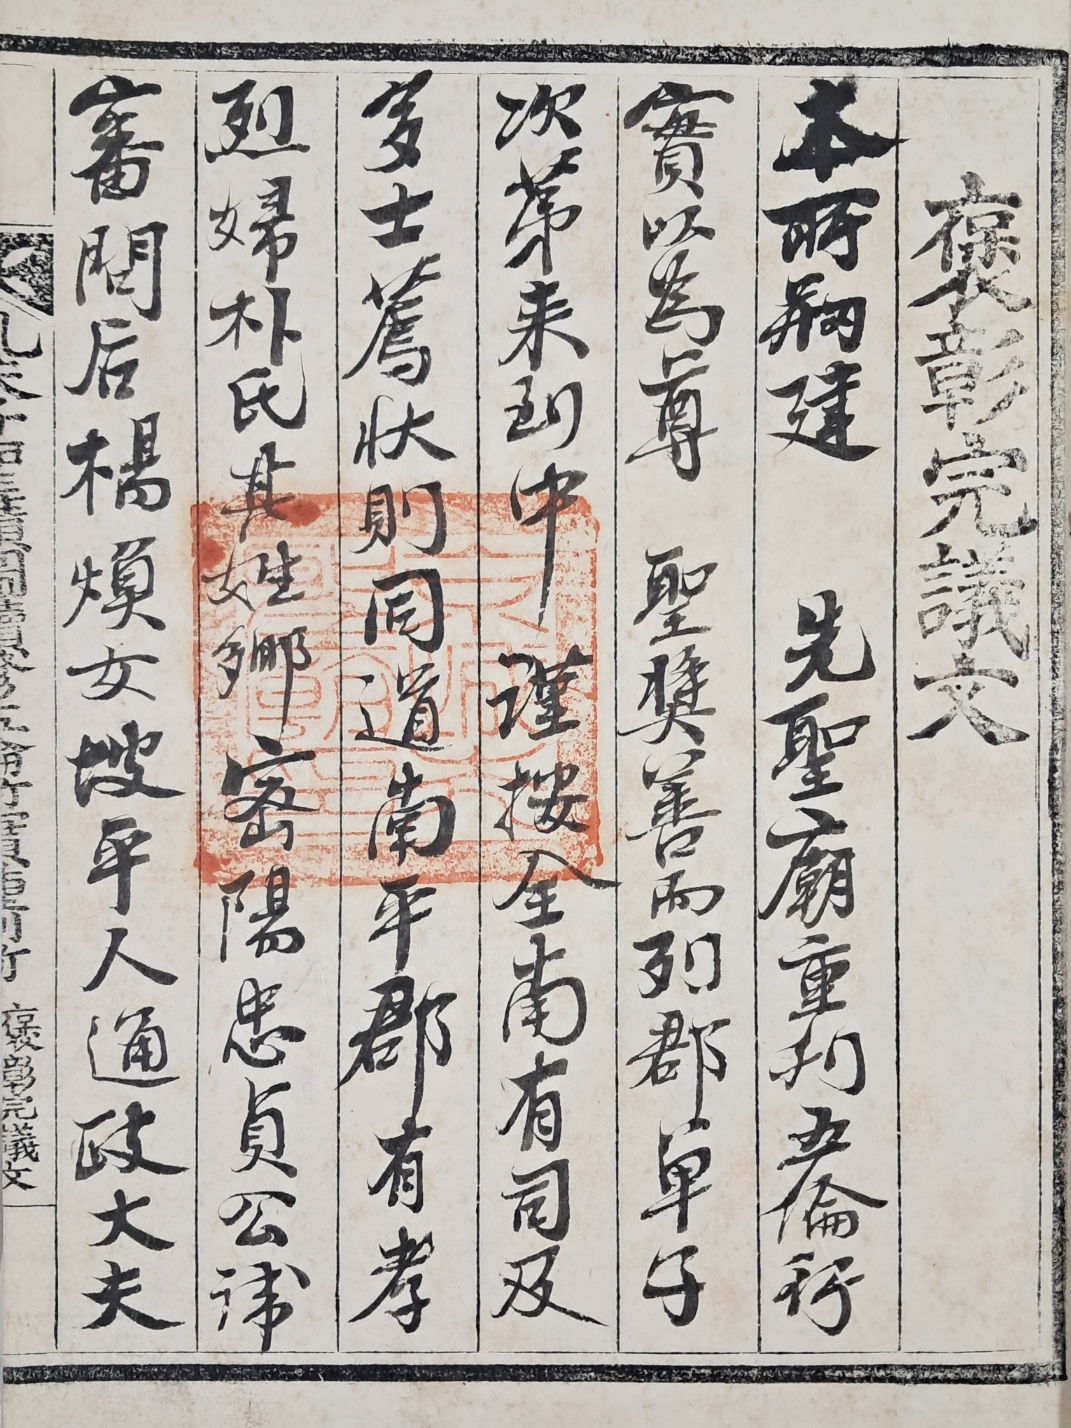 褒彰完議文
本所剏建　先聖廟重刊五倫行
實以爲尊　聖奬善而列郡單子
次第来到中謹按全南有司及
多士薦状則同道南平郡有孝
烈婦朴氏其姓鄕密陽忠貞公諱
審問后楊煥女坡平人通政大夫
褒彰完議文